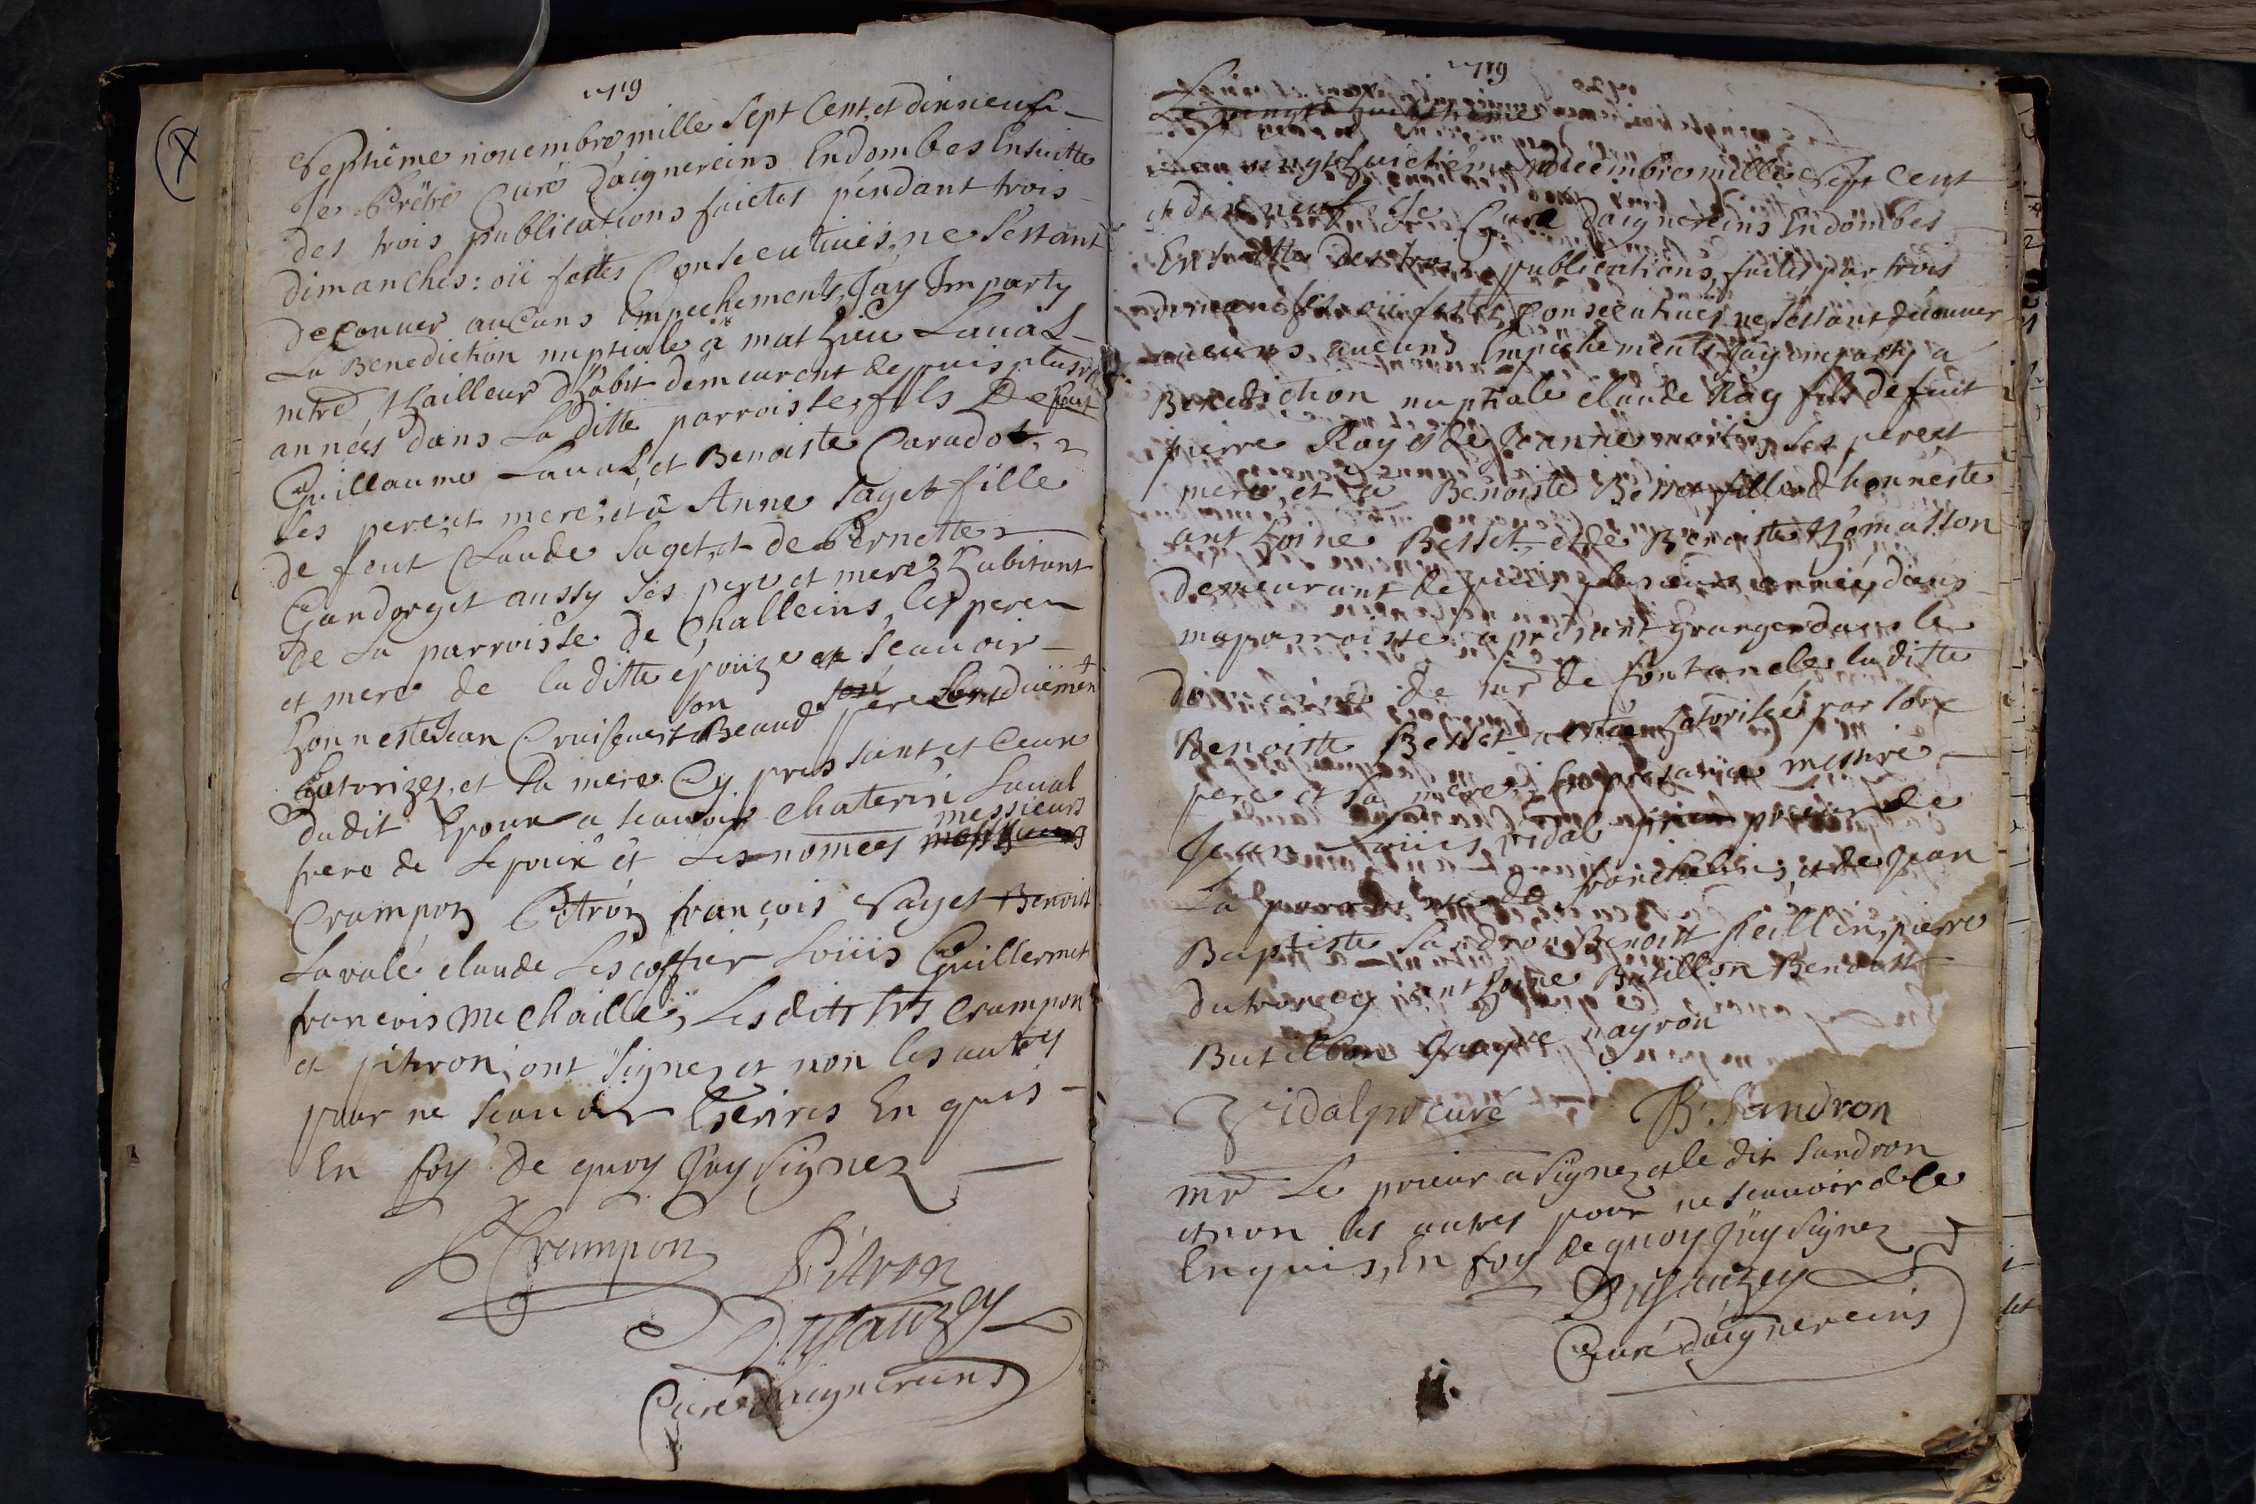 1719
Septiême nouembre mille Sept Cent et dixneufe
Je Prêtre Curé daignereins Endombes Ensuitte
des trois publications faictes pendant trois
dimanches: oü festes Consecutiues, ne Sestant
decouuer auCuns Empechements, Jay Imparty
La Benediction nuptiale â mathieu Laual
mtre thailleur dhabit demeurent depuis plusrs
années dans La ditte parroisse, fils De feut
Guillaume Laual, et Benoiste Caradot
Ses pere, et mere; et â Anne Saget fille
de feut Claude Saget, et de Pernette
Gandorget aussy Ses pere et mere habitant
de La parroisse de Challeins, les pere
et mere de laditte epouize a Scauoir
honneste Jean Beaud son pere düemen
hatorizez, et la mere Cy pressant, et Ceux
dudit Epoux a scauoir Chaterin Laual
frere de Lepoux et Les nomees messieurs
Crampon Pitron françois Saget Benoist
Lavale claude Lescoffier Loüis Guillermet
francois Michaille, Lesdits Srs Crampon
et pitron ont Signez et non les autres
pour ne Scauoir Escrires En quis
En foy de quoy Jay Signez
Crampon
Pitron
Dusauzey
Curé daignereins
1719
Le vingt huictieme
vingt huictiême decembre mille Sept Cent
et dix neuf Je Curé daignereins Endombes
Ensuitte Des trois publications, faites par trois
dimanches oü festes Consecutiues ne Sestant decouuer
aucuns Empechements Jay imparty a
Benediction nuptiale claude Ray fils defeut
pierre Ray et de Ses pere et
mere, et â Benoiste Besset fille d honneste
anthoine Besset et de Benoiste thomasson
demeurant depuis plusieurs années dans
maparroisse a present Granger dans le
de mr de fontanelle, laditte
Benoiste Besset hatorisée par Son
pere et sa mere, En presance messire
Jean Loüis vidal prieur de
La parroisse de francheleins, et de Jean
Baptiste Sandron Benoist Reillin, pierre
dutroncy anthoine Butillon Benoist
Butillon payron
Vidal pr curé
B. Sandron
mr Le prieur a signez et le dit Sandron
et non les autres pour ne scauoir de Ce
Enquis, En foy de quoy Jay Signez
Dusauzey
Curé daignereins